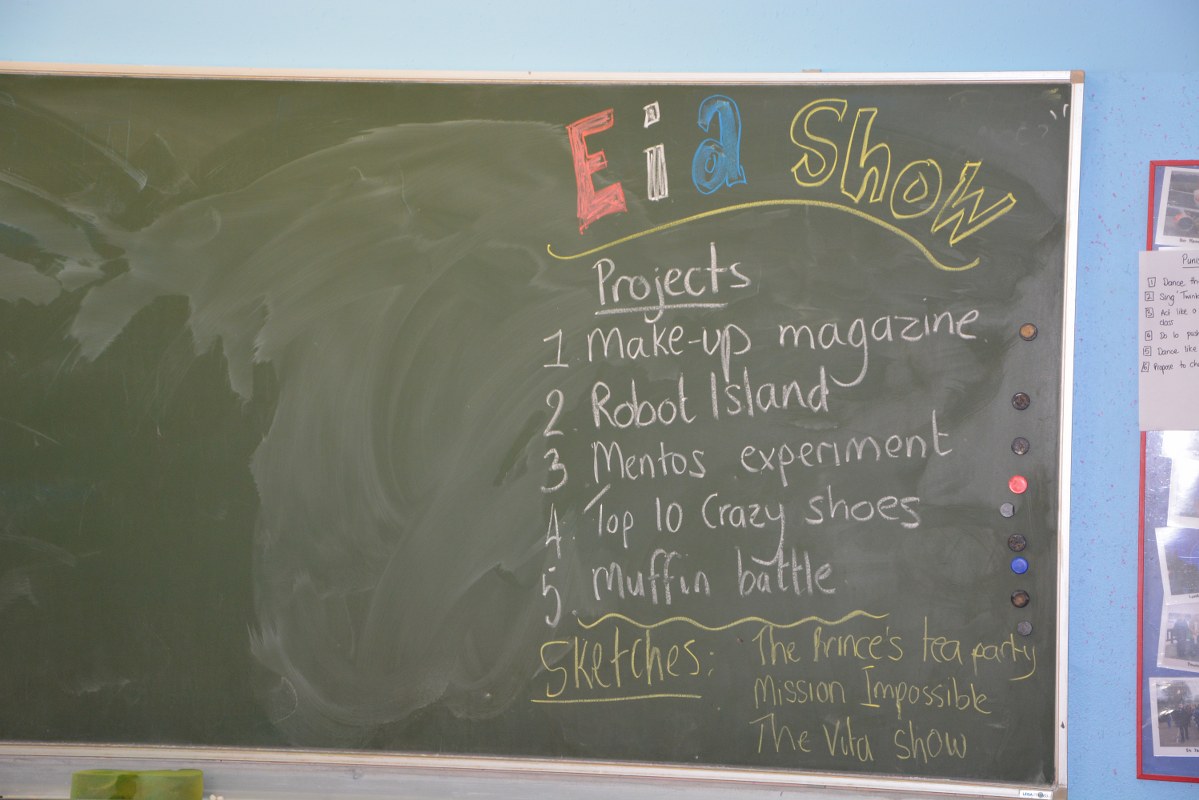 Eia Show
Projects
1. Make-up magazine
2. Robot Island
3. Mentos experiment
4. Top 10 Crazy shoes
5. Muffin battle
Sketches: The Prince's tea party
Mission Impossible
The Vita show
1 Dance
2 Sing
3 Act like a
class
4 Do 10
5 Dance like
6 Propose to